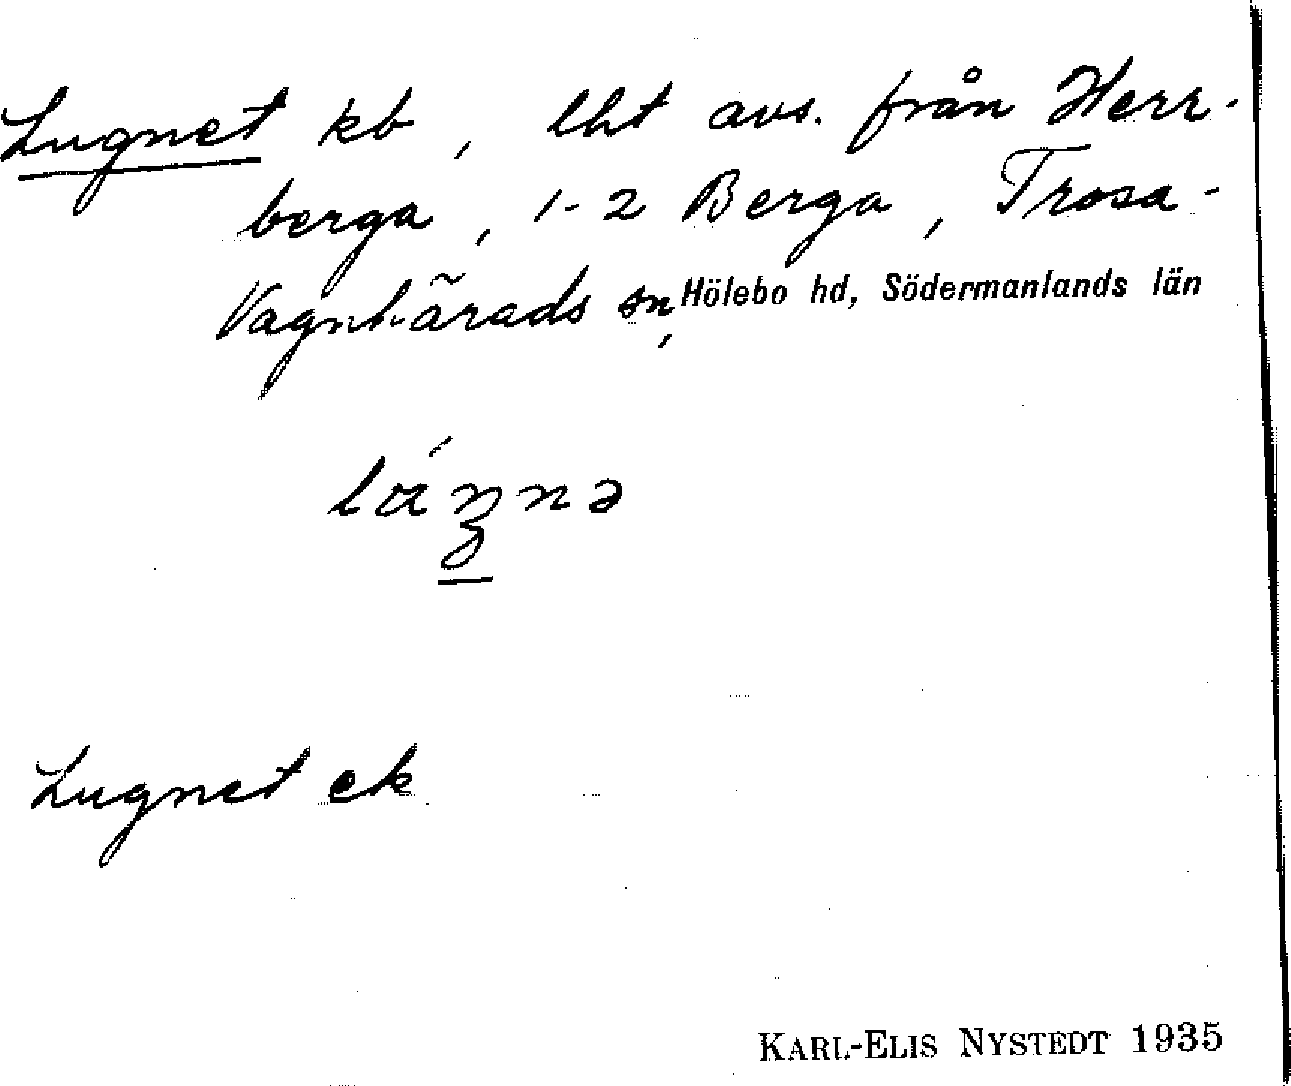 Lugnet kb, lht avs. från Herr-
berga, 1-2 Berga, Trosa-
Vagnhärads sn, Hölebo hd, Södermanlands län
Lugnet ek
KARL-ELIS NYSTEDT 1935